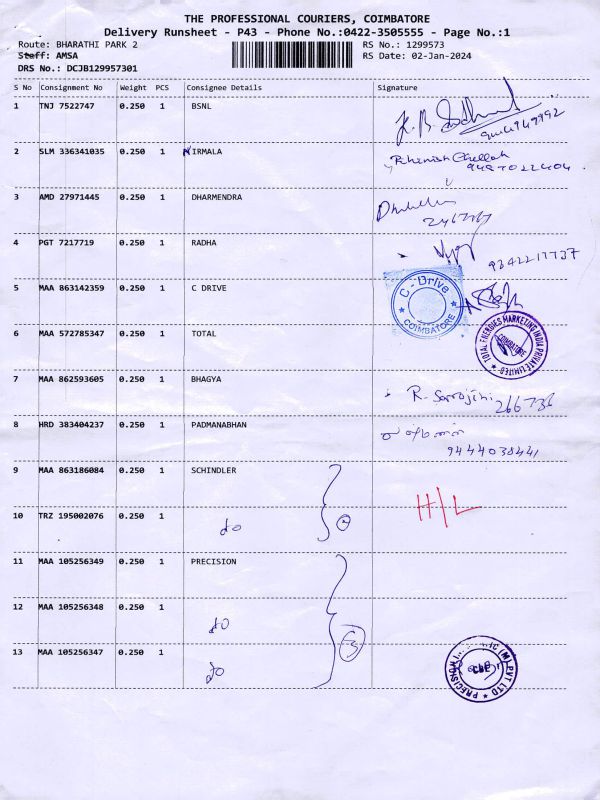 THE PROFESSIONAL COURIERS, COIMBATORE
Delivery Runsheet - P43 - Phone No.:0422-3505555 - Page No.:1
Route: BHARATHI PARK 2 RS No.: 1299573
Staff: AMSA RS Date: 02-Jan-2024
DRS No.: DCJB129957301
S No Consignment No Weight PCS Consignee Details Signature
1 TNJ 7522747 0.250 1 BSNL
2 SLM 336341035 0.250 1 NIRMALA
9487022404
3 AMD 27971445 0.250 1 DHARMENDRA
4 PGT 7217719 0.250 1 RADHA
5 MAA 863142359 0.250 1 C DRIVE
C - Drive
COIMBATORE
6 MAA 572785347 0.250 1 TOTAL
TOTAL ENERGIES MARKETING INDIA PRIVATE LIMITED
COIMBATORE
7 MAA 862593605 0.250 1 BHAGYA
R. Sarojini 266736
8 HRD 383404237 0.250 1 PADMANABHAN
9444038441
9 MAA 863186084 0.250 1 SCHINDLER
H/L
10 TRZ 195002076 0.250 1 do 2
11 MAA 105256349 0.250 1 PRECISION
12 MAA 105256348 0.250 1 do
3
13 MAA 105256347 0.250 1 do
PRECISION (M) PVT LTD
CBE